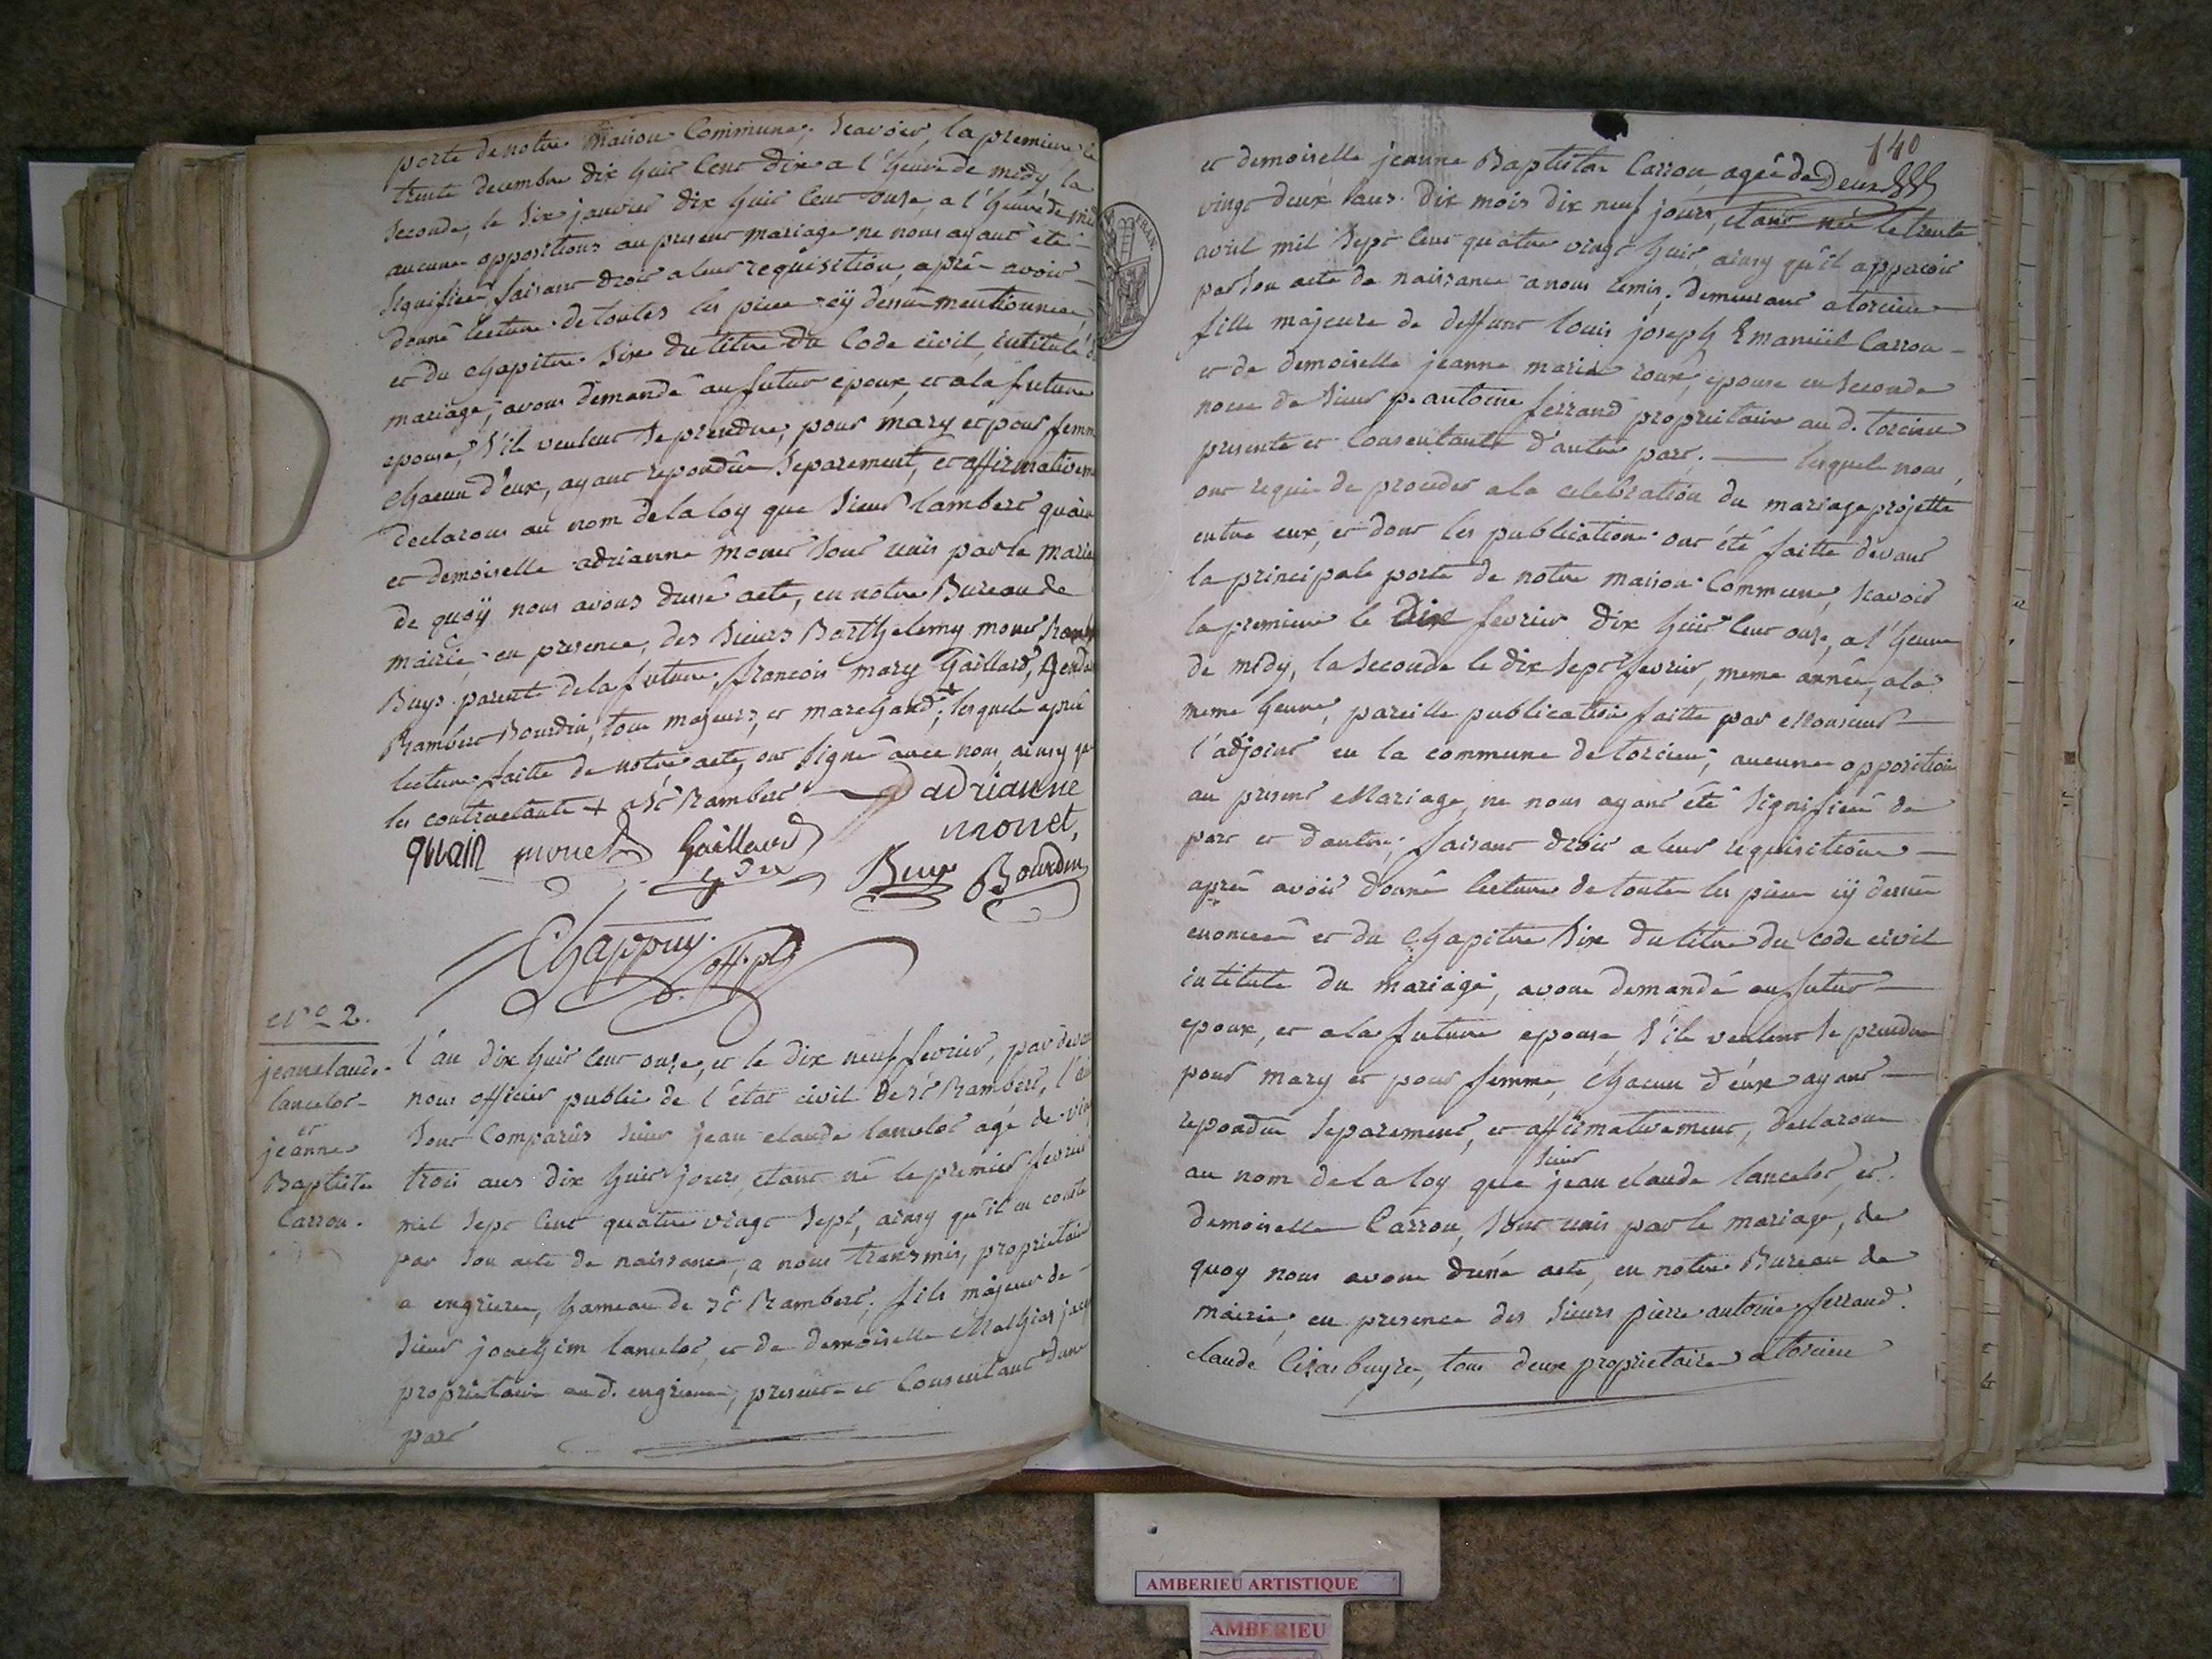 porte de notre maison Commune; scavoir, la premiere le
trente decembre dix huit cent dix a l'heure de midy, la
seconde, le six janvier dix huit cent onze, a l'heure de
aucune oppositions au present mariage ne nous ayant été
signifiée, faisant droit a leur requisition, aprè avoir
donné lecture de toutes les piece cÿ dessus mentionnée,
et du chapitre six du titre du Code civil, intitulé
mariage, avons demandé au futur epoux, et a la future
epouse, s'ils veulent se prendre, pour mary et pour femme
chacun d'eux, ayant repondu separement, et affirmativement
declarons au nom de la loy que sieur lambert quain
et demoiselle adrianne monet sont unis par le mariage
de quoÿ nous avons dressé acte, en notre Bureau de
mairie en presence, des sieurs Barthelemy monet
Buys parents de la future, francois mary Gaillard,
Rambert Bourdin, tous majeurs, et marchand +; lesquels après
lecture faitte de notre acte, ont signé avec nous, ainsy que
les contractants + a St Rambert
adrianne
monet,
quain monet Gaillard Buys Bourdin
Chappuy. off. pc
N° 2.
jean claude
lancelot
et
jeanne
Baptiste
Carron.
l'an dix huit cent onze, et le dix neuf fevrier, par devant
nous officier public de l'état civil de St Rambert, l'ain
sont Comparus sieur jean claude lancelot agé de vingt
trois ans dix huit jours, etant né le premier fevrier
mil sept cent quatre vingt sept, ainsy qu'il en conste
par son acte de naissance, a nous transmis, proprietaire
a engriere, hameau de St Rambert, fils majeur de
sieur joachim lancelot, et de demoiselle
proprietaire aud. engrieres, present et Consentant d'une
part
140
et demoiselle jeanne Baptiste Carron, agée de Deux
vingt deux ans dix mois dix neuf jours, etant née le trente
avril mil sept cent quatre vingt huit, ainsy qu'il apperoit
par son acte de naissance a nous remis; demeurant a torcieu
fille majeure de deffunt louis joseph Emanuël Carron
et de demoiselle jeanne marie roux, epouse en seconde
noce de sieur pe. antoine ferrand proprietaire aud. torcieu
presente et consentante d'autre part. lesquels nous
ont requis de proceder a la celebration du mariage projetté
entre eux, et dont les publications ont été faitte devant
la principale porte de notre maison Commune, scavoir
la premiere le dix fevrier dix huit cent onze, a l'heure
de midy, la seconde le dix sept fevrier, meme année, a la
meme heure, pareille publication faitte par Monsieur
l'adjoint en la commune de torcieu; aucune opposition
au present Mariage, ne nous ayant été signifiée de
part et d'autre; faisant droit a leur requisition
aprè avoir donné lecture de toute les piece cÿ dessus
enoncée et du chapitre six du titre du code civil
intitulé du mariage, avons demandé au futur
epoux, et a la future epouse, s'ils veulent se prendre
pour mary et pour femme, chacun d'eux ayant
repondu separement, et affirmativement, declarons
au nom de la loy que sieur jean claude lancelot, et
demoiselle Carron, sont unis par le mariage, de
quoy nous avons dressé acte, en notre Bureau de
mairie, en presence des sieurs pierre antoine ferrand
claude buyre, tous deux proprietaires a torcieu
AMBERIEU ARTISTIQUE
AMBERIEU